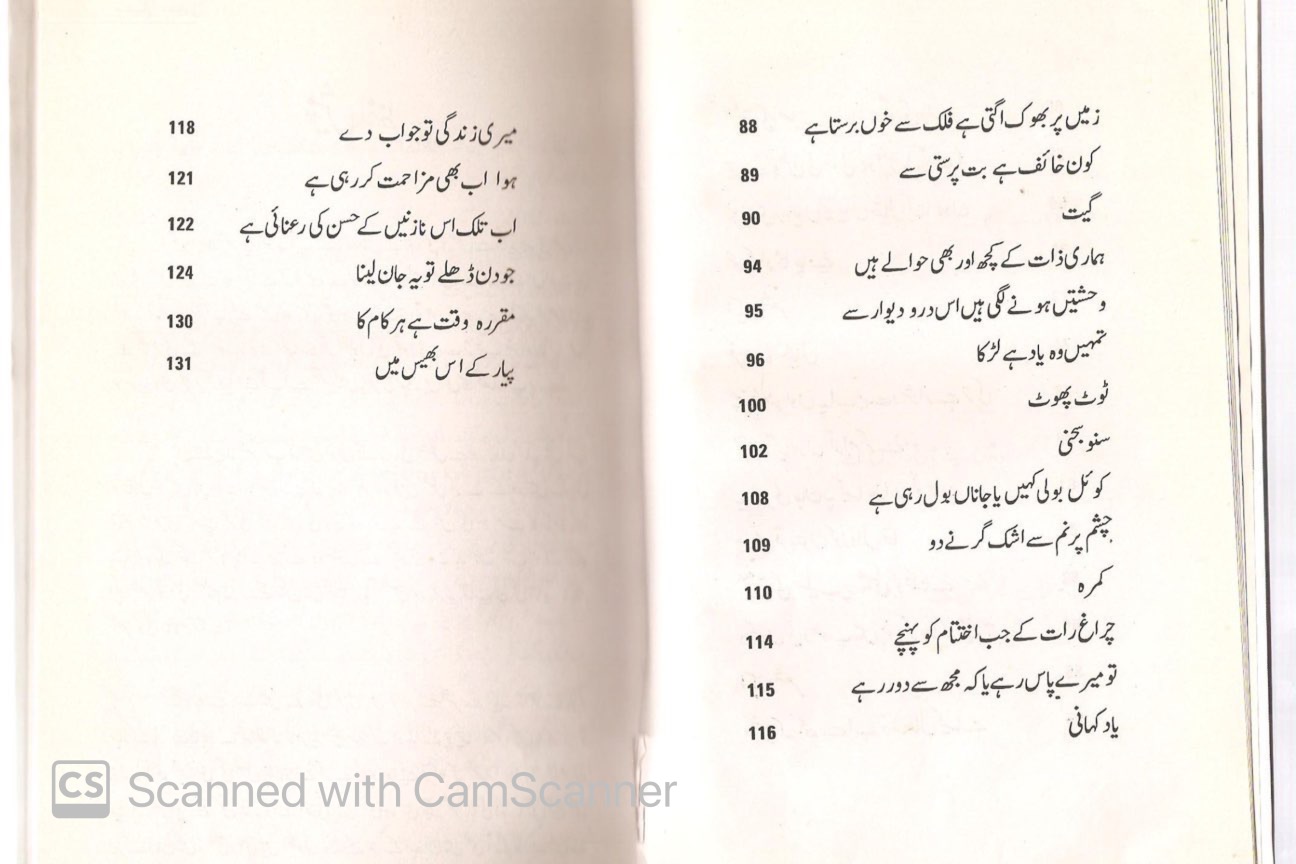 زمیں پر بھوک اگتی ہے فلک سے خوں برستا ہے 88
کون خائف ہے بت پرستی سے 89
گیت 90
ہماری ذات کے کچھ اور بھی حوالے ہیں 94
وحشتیں ہونے لگی ہیں اس در و دیوار سے 95
تمہیں وہ یاد ہے لڑکا 96
ٹوٹ پھوٹ 100
سنو سجنی 102
کوئل بولی کہیں یا جاناں بول رہی ہے 108
چشم پرنم سے اشک گرنے دو 109
کمرہ 110
چراغ رات کے جب اختتام کو پہنچے 114
تو میرے پاس رہے یا کہ مجھ سے دور رہے 115
یاد کہانی 116
میری زندگی تو جواب دے 118
ہوا اب بھی مزاحمت کر رہی ہے 121
اب تلک اس نازنیں کے حسن کی رعنائی ہے 122
جو دن ڈھلے تو یہ جان لینا 124
مقررہ وقت ہے ہر کام کا 130
پیار کے اس بھیس میں 131
CS Scanned with CamScanner